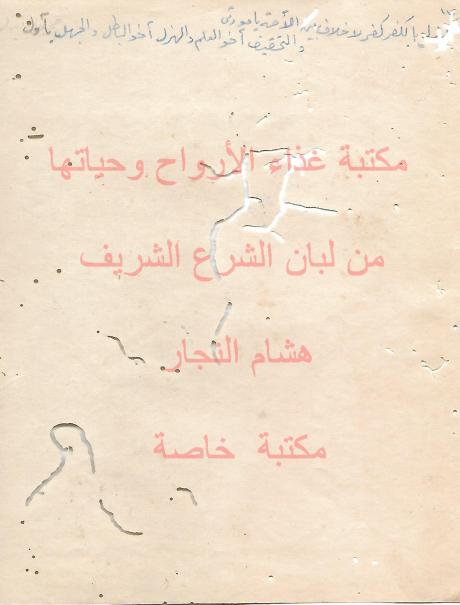 بالكفر كفر لا خلاف بين الأمة يا بودرتي
والتحقيق أخو العلم والهزل أخو الباطل والجهل
مكتبة غذاء الأرواح وحياتها
من لبان الشرع الشريف
هشام النجار
مكتبة خاصة